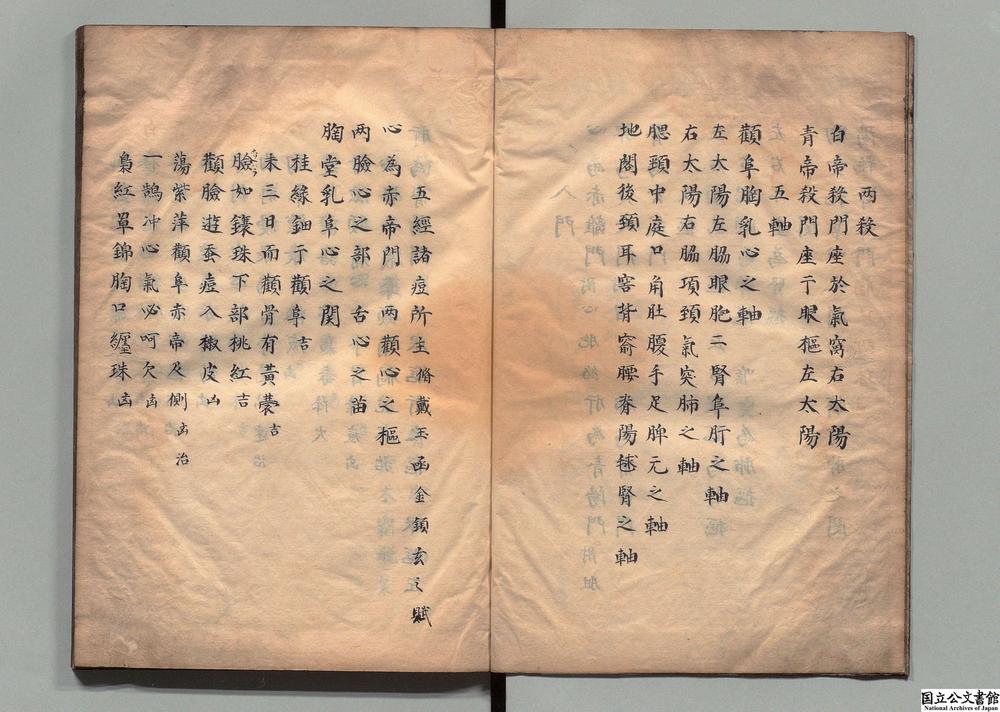 両殺
白帝殺門座於氣窩右太陽
青帝殺門座亍眼樞左太陽
五軸
顴阜胸乳心之軸
左太陽左脇眼胞二腎阜肝之軸
右太陽右脇項頸氣突肺之軸
腮頸中庭口角肚腹手足脾元之軸
地閣後頸耳窖背窬腰脊陽毬腎之軸
五經諸痘所主脩戴玉函金鎖玄之賦
心為赤帝門両顴心之樞
両臉心之部舌心之苗
胸堂乳阜心之関
挂綠鈿亍顴阜吉
未三日而顴骨有黃蘘吉
臉如鑲珠下部桃紅吉
顴臉遊蚕痘入椒皮凶
蕩紫萍顴阜赤帝及側凶治
一鵠冲心氣必呵欠凶
梟紅罩錦胸口纏珠凶
国立公文書館
National Archives of Japan